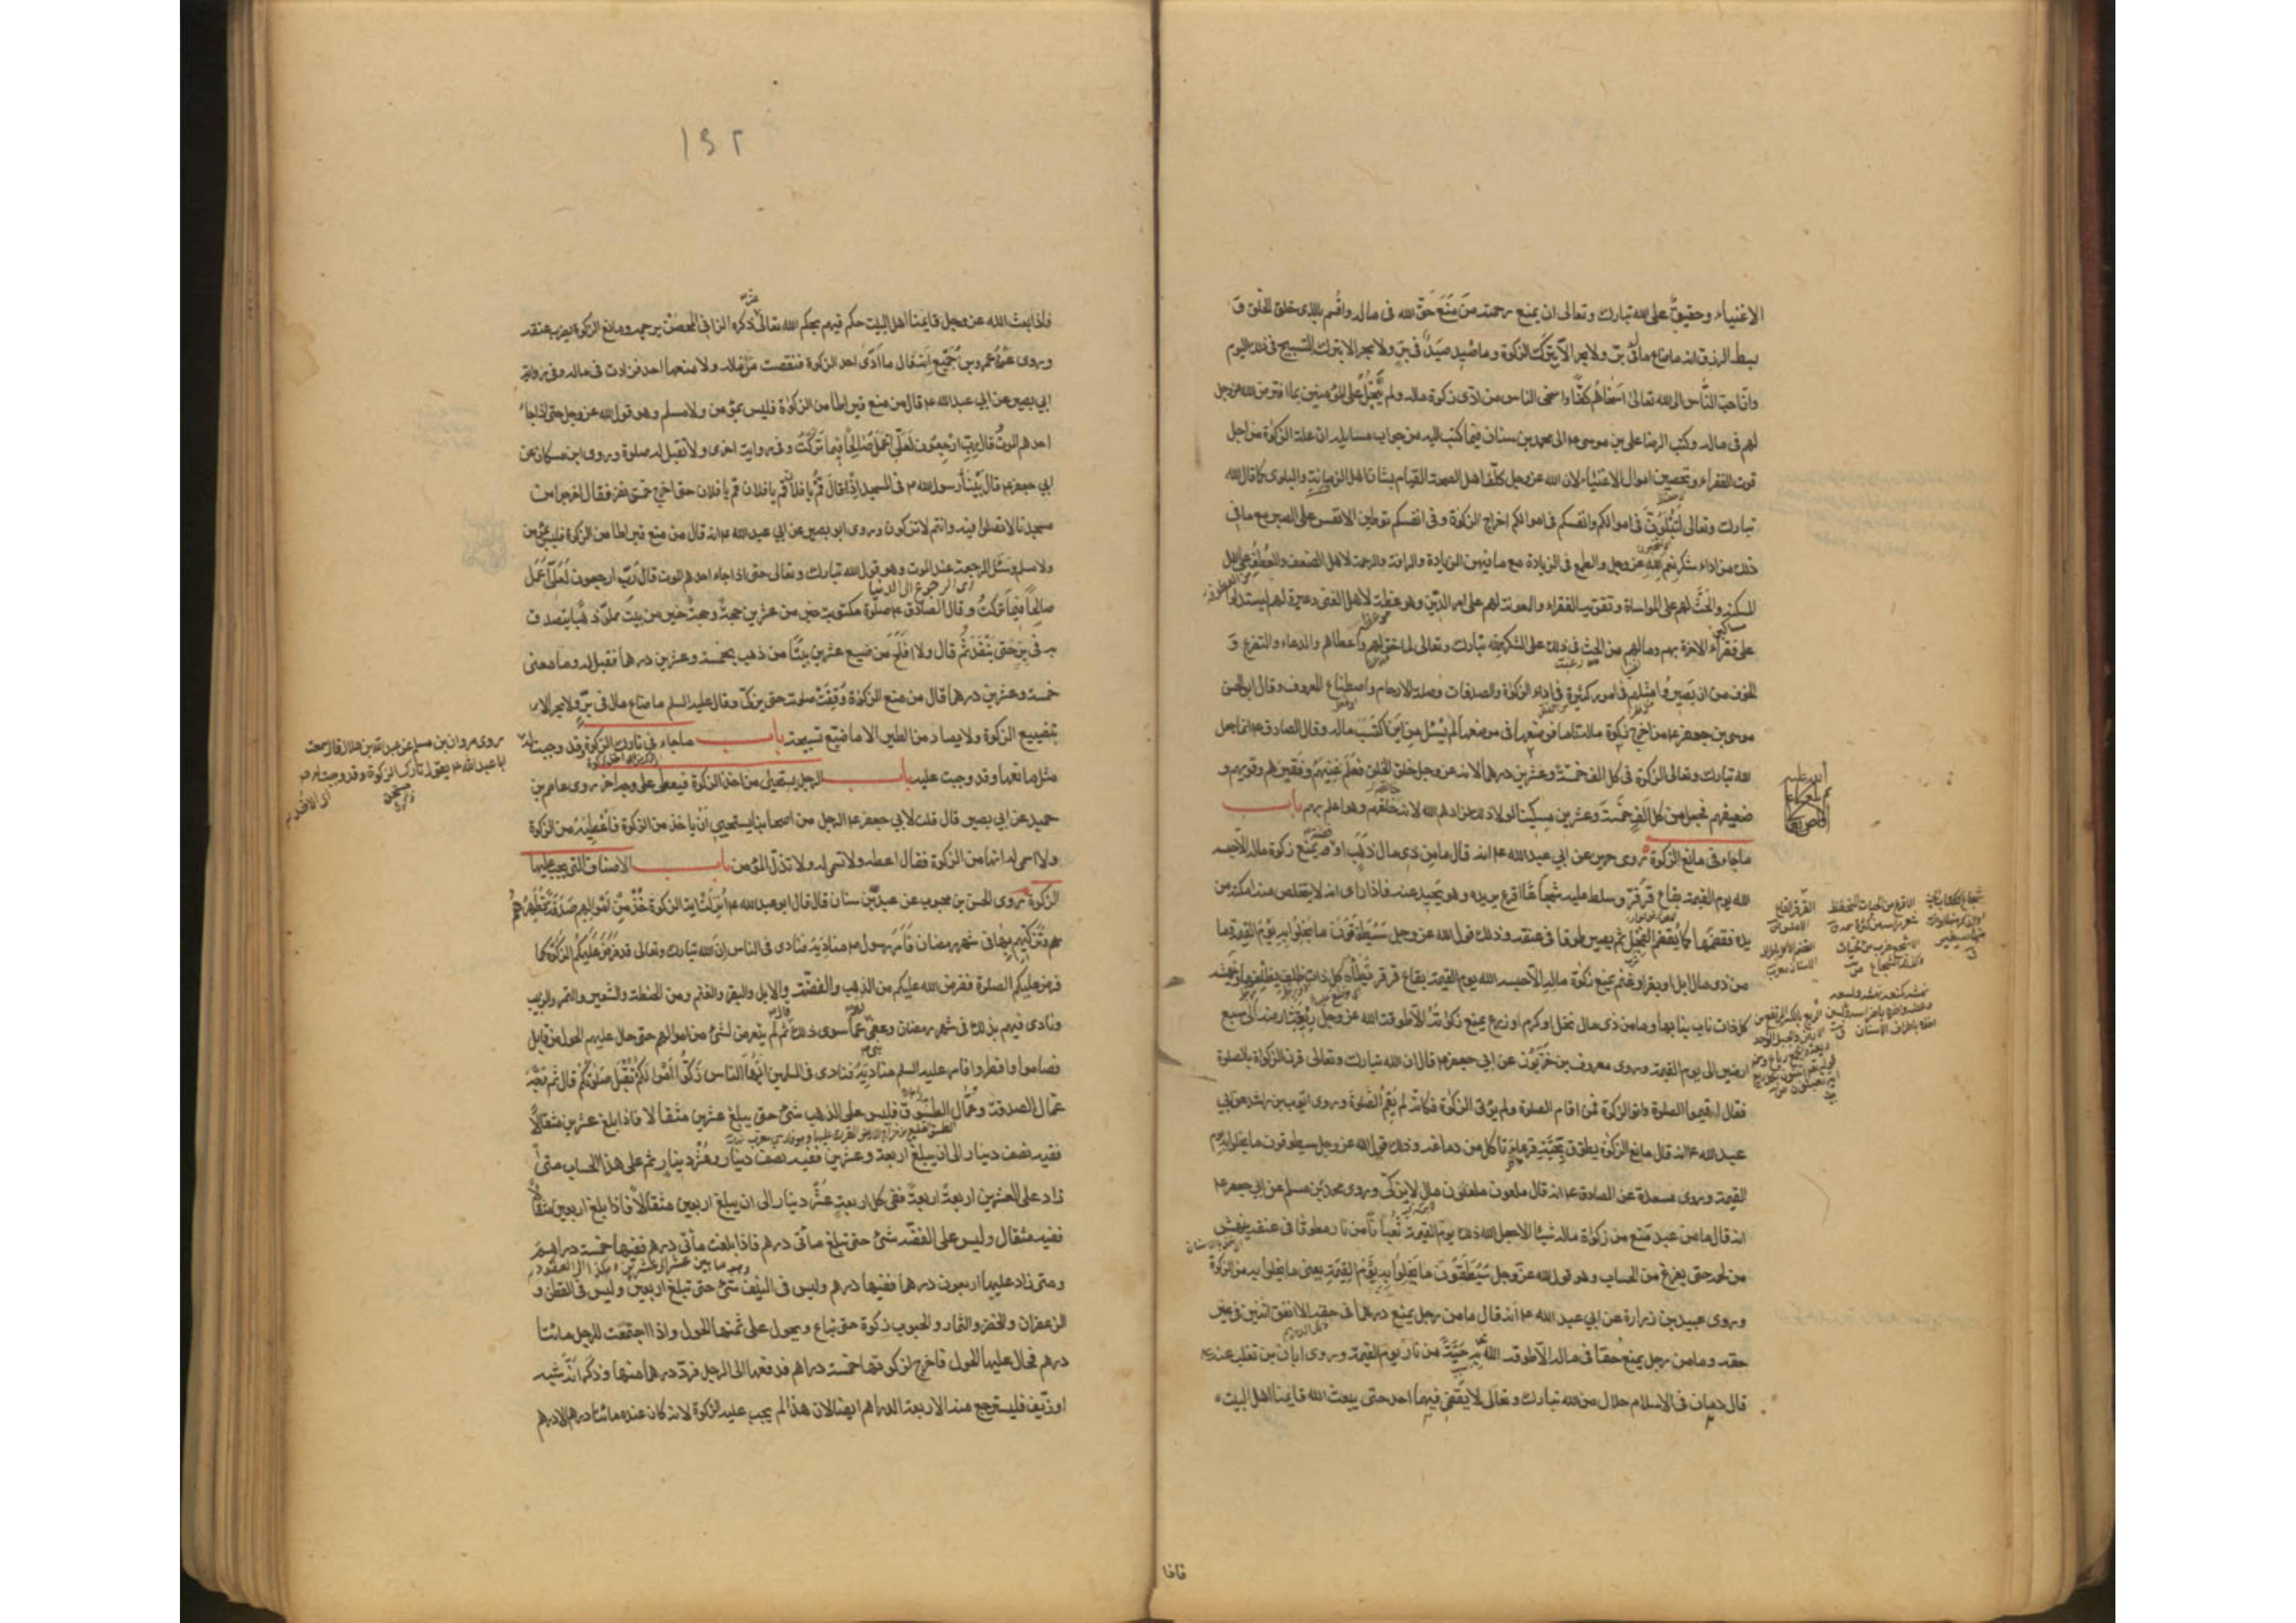 الاغنياء وحقيق على الله تبارك وتعالى ان يمنع رحمته من منع حق الله فى ماله واقسم بالذى خلق الخلق و
بسط الرزق انه ماضاع مال فى بر ولا بحر الا بترك الزكوة وما صيد صيد فى بر ولا بحر الا بتركه التسبيح فى ذلك اليوم
وان احب الناس الى الله تعالى اسخاهم كفا واسخى الناس من ادى زكوة ماله ولم يبخل على المؤمنين بما افترض الله عز وجل
لهم فى ماله وكتب الرضا على بن موسى ع الى محمد بن سنان فيما كتب اليه من جواب مسايله ان علة الزكوة من اجل
قوت الفقراء وتحصين اموال الاغنياء لان الله عز وجل كلف اهل الصحة القيام بشان اهل الزمانة والبلوى كما قال الله
تبارك وتعالى لتبلون فى اموالكم وانفسكم فى اموالكم اخراج الزكوة وفى انفسكم توطين الانفس على الصبر مع ما فى
ذلك من اداء شكر نعم الله عز وجل والطمع فى الزيادة مع ما فيه من الزيادة والرافة والرحمة لاهل الضعف والعطف على اهل
المسكنة والحث لهم على المواساة وتقوية الفقراء والمعونة لهم على امر الدين وهو عظة لاهل الغنى وعبرة لهم ليستدلوا
على فقراء الاخرة بهم وما لهم من الحث فى ذلك على الشكر لله تبارك وتعالى لما خولهم واعطاهم والدعاء والتضرع و
الخوف من ان يصيروا مثلهم فى امور كثيرة فى اداء الزكوة والصدقات وصلة الارحام واصطناع المعروف وقال ابو الحسن
موسى بن جعفر ع من اخرج زكوة ماله تاما فوضعها فى موضعها لم يسئل من اين اكتسب ماله وقال الصادق ع انما جعل
الله تبارك وتعالى الزكوة فى كل الف خمسة وعشرين درهما لانه عز وجل خلق الخلق فعلم غنيهم وفقيرهم وقويهم و
ضعيفهم فجعل من كل الف خمسة وعشرين مسكينا لولا ذلك لزادهم الله لانه خالقهم وهو اعلم بهم باب
ماجاء فى مانع الزكوة روى حريز عن ابي عبد الله ع انه قال ما من ذى مال ذهب او فضة يمنع زكوة ماله الا حبسه
الله يوم القيمة بقاع قرقر وسلط عليه شجاعا اقرع يريده وهو يحيد عنه فاذا راى انه لا يتخلص منه امكنه من
يده فقضمها كما يقضم الفجل ثم يصير طوقا فى عنقه وذلك قول الله عز وجل سيطوقون ما بخلوا به يوم القيمة وما
من ذى مال ابل او بقر او غنم يمنع زكوة ماله الا حبسه الله يوم القيمة بقاع قرقر تطأه كل ذات ظلف بظلفها وتنهشه
كل ذات ناب بنابها وما من ذى مال نخل او كرم او زرع يمنع زكوته الا طوقه الله عز وجل ريعة ارضه الى سبع
ارضين الى يوم القيمة وروى معروف بن خربوذ عن ابي جعفر ع قال ان الله تبارك وتعالى قرن الزكوة بالصلوة
فقال اقيموا الصلوة واتوا الزكوة فمن اقام الصلوة ولم يؤت الزكوة فكانه لم يقم الصلوة وروى ايوب بن راشد عن ابي
عبد الله ع انه قال مانع الزكوة يطوق بحية قرعاء تاكل من دماغه وذلك قول الله عز وجل سيطوقون ما بخلوا به يوم
القيمة وروى مسعدة عن الصادق ع انه قال ملعون ملعون مال لا يزكى وروى محمد بن مسلم عن ابي جعفر ع
انه قال ما من عبد منع من زكوة ماله شيئا الا جعل الله ذلك يوم القيمة ثعبانا من نار مطوقا فى عنقه ينهش
من لحمه حتى يفرغ من الحساب وهو قول الله عز وجل سيطوقون ما بخلوا به يوم القيمة يعنى ما بخلوا به من الزكوة
وروى عبيد بن زرارة عن ابي عبد الله ع انه قال ما من رجل يمنع درهما فى حقه الا انفق اثنين فى غير
حقه وما من رجل يمنع حقا فى ماله الا طوقه الله به حية من نار يوم القيمة وروى ابان بن تغلب عنه ع
قال دمان فى الاسلام حلال من الله تبارك وتعالى لا يقضى فيهما احد حتى يبعث الله قايمنا اهل البيت
فاذا
١٥٢
فاذا بعث الله عز وجل قايمنا اهل البيت حكم فيهم بحكم الله تعالى ذكره الزانى المحصن يرجمه ومانع الزكوة يضرب عنقه
وروى عنه عمرو بن جميع انه قال ما ادى احد الزكوة فنقصت من ماله ولا منعها احد فزادت فى ماله وفى رواية
ابي بصير عن ابي عبد الله ع قال من منع قيراطا من الزكوة فليس بمؤمن ولا مسلم وهو قول الله عز وجل حتى اذا جاء
احدهم الموت قال رب ارجعون لعلى اعمل صالحا فيما تركت وفى رواية اخرى ولا تقبل له صلوة وروى ابن مسكان عن
ابي جعفر ع قال بينا رسول الله ص فى المسجد اذ قال قم يا فلان قم يا فلان قم يا فلان حتى اخرج خمسة نفر فقال اخرجوا من
مسجدنا لا تصلوا فيه وانتم لا تزكون وروى ابو بصير عن ابي عبد الله ع انه قال من منع قيراطا من الزكوة فليس بمؤمن
ولا مسلم وسئل الرجعة عند الموت وهو قول الله تبارك وتعالى حتى اذا جاء احدهم الموت قال رب ارجعون لعلى اعمل
اى الرجوع الى الدنيا
صالحا فيما تركت وقال الصادق ع صلوة مكتوبة خير من عشرين حجة وحجة خير من بيت مملو ذهبا يتصدق
به فى بر حتى ينفد ثم قال ولا افلح من ضيع عشرين بيتا من ذهب بخمسة وعشرين درهما فقيل له وما معنى
خمسة وعشرين درهما قال من منع الزكوة وقفت صلوته حتى يزكى وقال عليه السلم ماضاع مال فى بر ولا بحر الا
بتضييع الزكوة ولا يصاد من الطير الا ما ضيع تسبيحه باب ماجاء فى تارك الزكوة وقد وجبت له
روى مروان بن مسلم عن عبد الله بن هلال قال سمعت
ابا عبد الله ع يقول تارك الزكوة وقد وجبت له
مثل مانعها وقد وجبت عليه باب الرجل يستحيى من اخذ الزكوة فيعطى على وجه اخر روى عاصم بن
حميد عن ابي بصير قال قلت لابي جعفر ع الرجل من اصحابنا يستحيى ان ياخذ من الزكوة فاعطيه من الزكوة
ولا اسمى له انها من الزكوة فقال اعطه ولا تسم له ولا تذل المؤمن باب الاصناف التى يجب عليها
الزكوة روى الحسن بن محبوب عن عبد الله بن سنان قال قال ابو عبد الله ع انزلت اية الزكوة خذ من اموالهم صدقة تطهرهم
وتزكيهم بها فى شهر رمضان فامر رسول الله ص مناديه فنادى فى الناس ان الله تبارك وتعالى قد فرض عليكم الزكوة كما
فرض عليكم الصلوة ففرض الله عليكم من الذهب والفضة والابل والبقر والغنم ومن الحنطة والشعير والتمر والزبيب
ونادى فيهم بذلك فى شهر رمضان وعفى لهم عما سوى ذلك قال ثم لم يتعرض لشئ من اموالهم حتى حال عليهم الحول من قابل
فصاموا وافطروا فامر عليه السلم مناديه فنادى فى المسلمين ايها الناس زكوا اموالكم تقبل صلوتكم قال ثم وجه
عمال الصدقة وعمال الطسوق فليس على الذهب شئ حتى يبلغ عشرين مثقالا فاذا بلغ عشرين مثقالا
ففيه نصف دينار الى ان يبلغ اربعة وعشرين ففيه نصف دينار وعشر دينار ثم على هذا الحساب متى
زاد على العشرين اربعة اربعة ففى كل اربعة عشر دينار الى ان يبلغ اربعين مثقالا فاذا بلغ اربعين مثقالا
ففيه مثقال وليس على الفضة شئ حتى تبلغ مأتى درهم فاذا بلغت مأتى درهم ففيها خمسة دراهم
ومتى زاد عليها اربعون درهما ففيها درهم وليس فى النيف شئ حتى تبلغ اربعين وليس فى القطن و
الزعفران والخضر والثمار والحبوب زكوة حتى تباع ويحول على ثمنها الحول واذا اجتمعت للرجل مائتا
درهم فحال عليها الحول فاخرج لزكوتها خمسة دراهم فدفعها الى الرجل فرد درهما منها وذكر انه شبه
او زيف فليسترجع منه الاربعة الدراهم ايضا لان هذا لم يجب عليه الزكوة لانه كان عنده مائتا درهم الا درهم